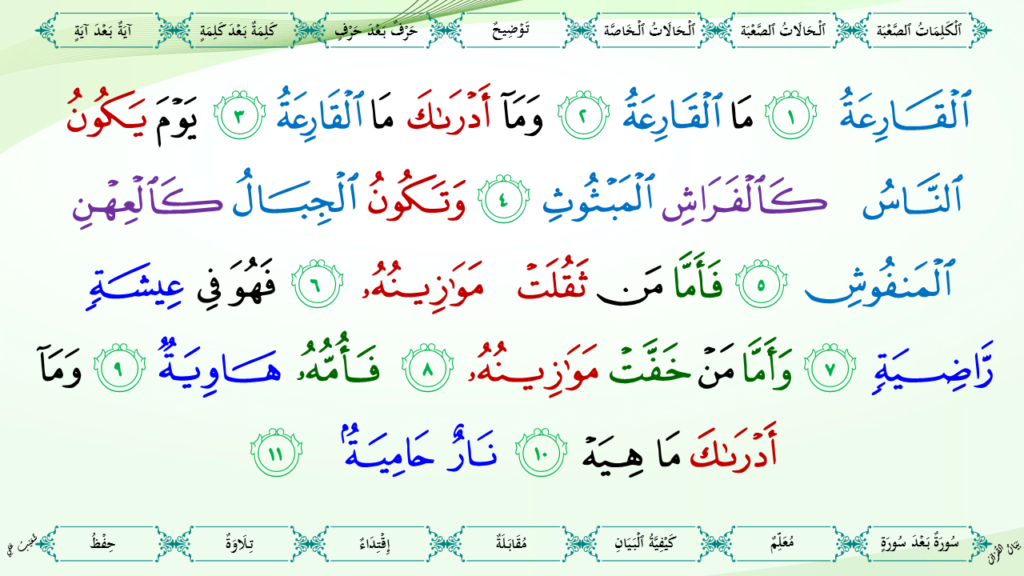 ٱلْكَلِمَاتُ ٱلصَّعْبَة ٱلْحَالَاتُ ٱلصَّعْبَة ٱلْحَالَاتُ ٱلْخَاصَّة تَوْضِيحٌ حَرْفٌ بَعْدَ حَرْفٍ كَلِمَةٌ بَعْدَ كَلِمَةٍ آيَةٌ بَعْدَ آيَةٍ
ٱلْقَارِعَةُ ١ مَا ٱلْقَارِعَةُ ٢ وَمَآ أَدْرَىٰكَ مَا ٱلْقَارِعَةُ ٣ يَوْمَ يَكُونُ
ٱلنَّاسُ كَٱلْفَرَاشِ ٱلْمَبْثُوثِ ٤ وَتَكُونُ ٱلْجِبَالُ كَٱلْعِهْنِ
ٱلْمَنفُوشِ ٥ فَأَمَّا مَن ثَقُلَتْ مَوَٰزِينُهُۥ ٦ فَهُوَ فِى عِيشَةٍ
رَّاضِيَةٍ ٧ وَأَمَّا مَنْ خَفَّتْ مَوَٰزِينُهُۥ ٨ فَأُمُّهُۥ هَاوِيَةٌ ٩ وَمَآ
أَدْرَىٰكَ مَا هِيَهْ ١٠ نَارٌ حَامِيَةٌۢ ١١
سُورَةٌ بَعْدَ سُورَةٍ مُعَلِّمٌ كَيْفِيَّةُ ٱلْبَيَانِ مُقَابَلَةٌ إِقْتِدَاءٌ تِلَاوَةٌ حِفْظُ
بَيَانُ القُرآن